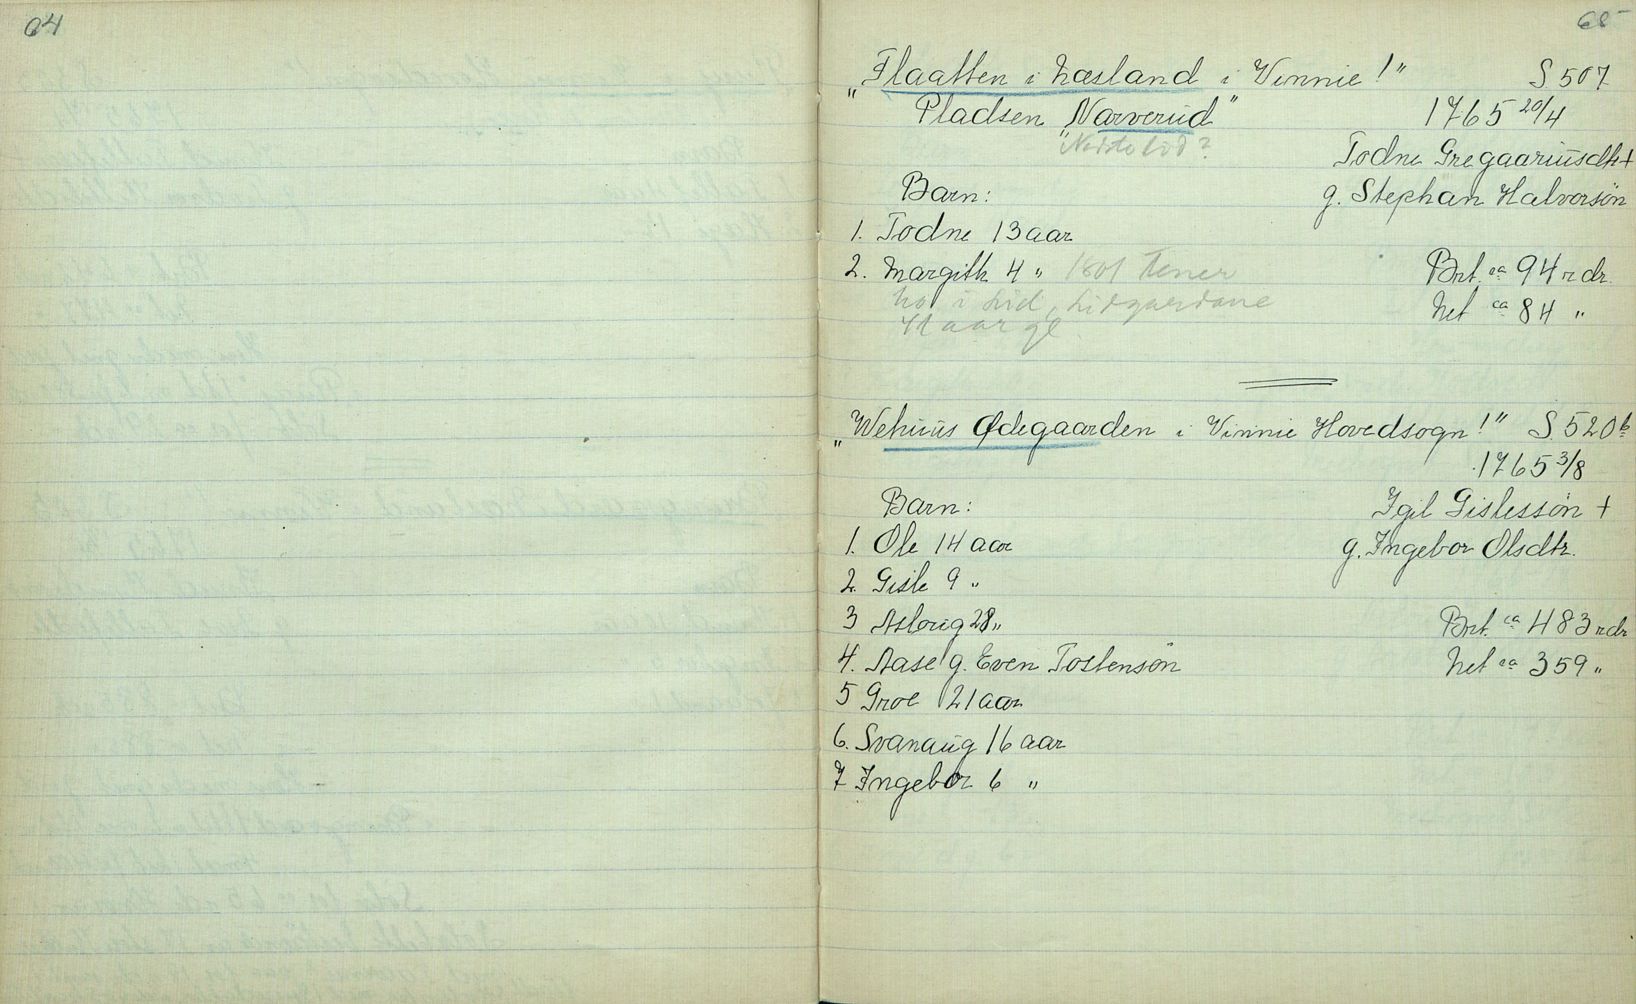 64
65
"Flaatten i Næsland i Vinnie!" S 507
Pladsen "Narverud" 1765 20/4
Todne Gregaariusdtr +
Barn: g. Stephan Halvorsön
1. Todne 13 aar
2. Margith 4 " 1801 tener Brt. ca 94 rdr.
hos i Lid, Lidgardane Net ca 84 "
41 aar gl.
"Wehuus Ødegaarden i Vinnie Hovedsogn!" S. 520 b
1765 3/8
Barn: Igil Gislessön +
1. Ole 14 aar g. Ingebor Olsdtr.
2. Gisle 9 "
3 Asloug 28 " Brt. ca 483 rdr
4. Aase g. Even Tostensön Net ca 359 "
5 Groe 21 aar
6. Svanaug 16 aar
7 Ingebor 6 "